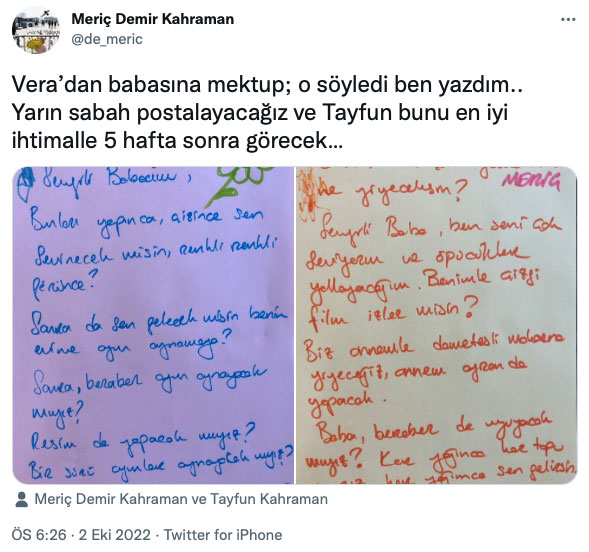 Meriç Demir Kahraman
@de_meric
Vera’dan babasına mektup; o söyledi ben yazdım..
Yarın sabah postalayacağız ve Tayfun bunu en iyi
ihtimalle 5 hafta sonra görecek...
Sevgili Babacım,
Bunları yapınca, çizince sen
sevinecek misin, renkli renkli
görünce?
Sonra da sen gelecek misin benim
evime oyun oynamaya?
Sonra, beraber oyun oynayacak
mıyız?
Resim de yapacak mıyız?
Bir sürü oyunlar oynayacak mıyız?
ne yiyecektim?
MERİÇ
Sevgili Baba, ben seni çok
seviyorum ve öpücükler
yollayacağım. Benimle çizgi
film izler misin?
Biz annemle domatesli makarna
yiyeceğiz, annem ayran da
yapacak.
Baba, beraber de uyuyacak
mıyız? Kar yağınca kar topu
kar yağınca sen gelirsin
Meriç Demir Kahraman ve Tayfun Kahraman
ÖS 6:26 · 2 Eki 2022 · Twitter for iPhone